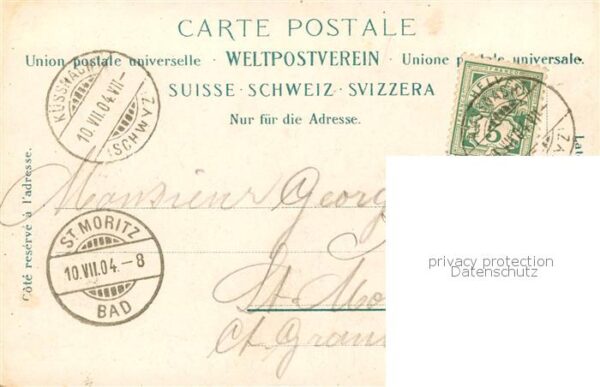 CARTE POSTALE
Union postale universelle · WELTPOSTVEREIN · Unione postale universale.
SUISSE · SCHWEIZ · SVIZZERA
Nur für die Adresse.
Côté reservé à l'adresse.
KÜSSNACHT
10.VII.04.VII-
(SCHWYZ)
5
Monsieur Georg
ST. MORITZ
10.VII.04.-8
BAD
St. Mo
Ct. Grau
privacy protection
Datenschutz